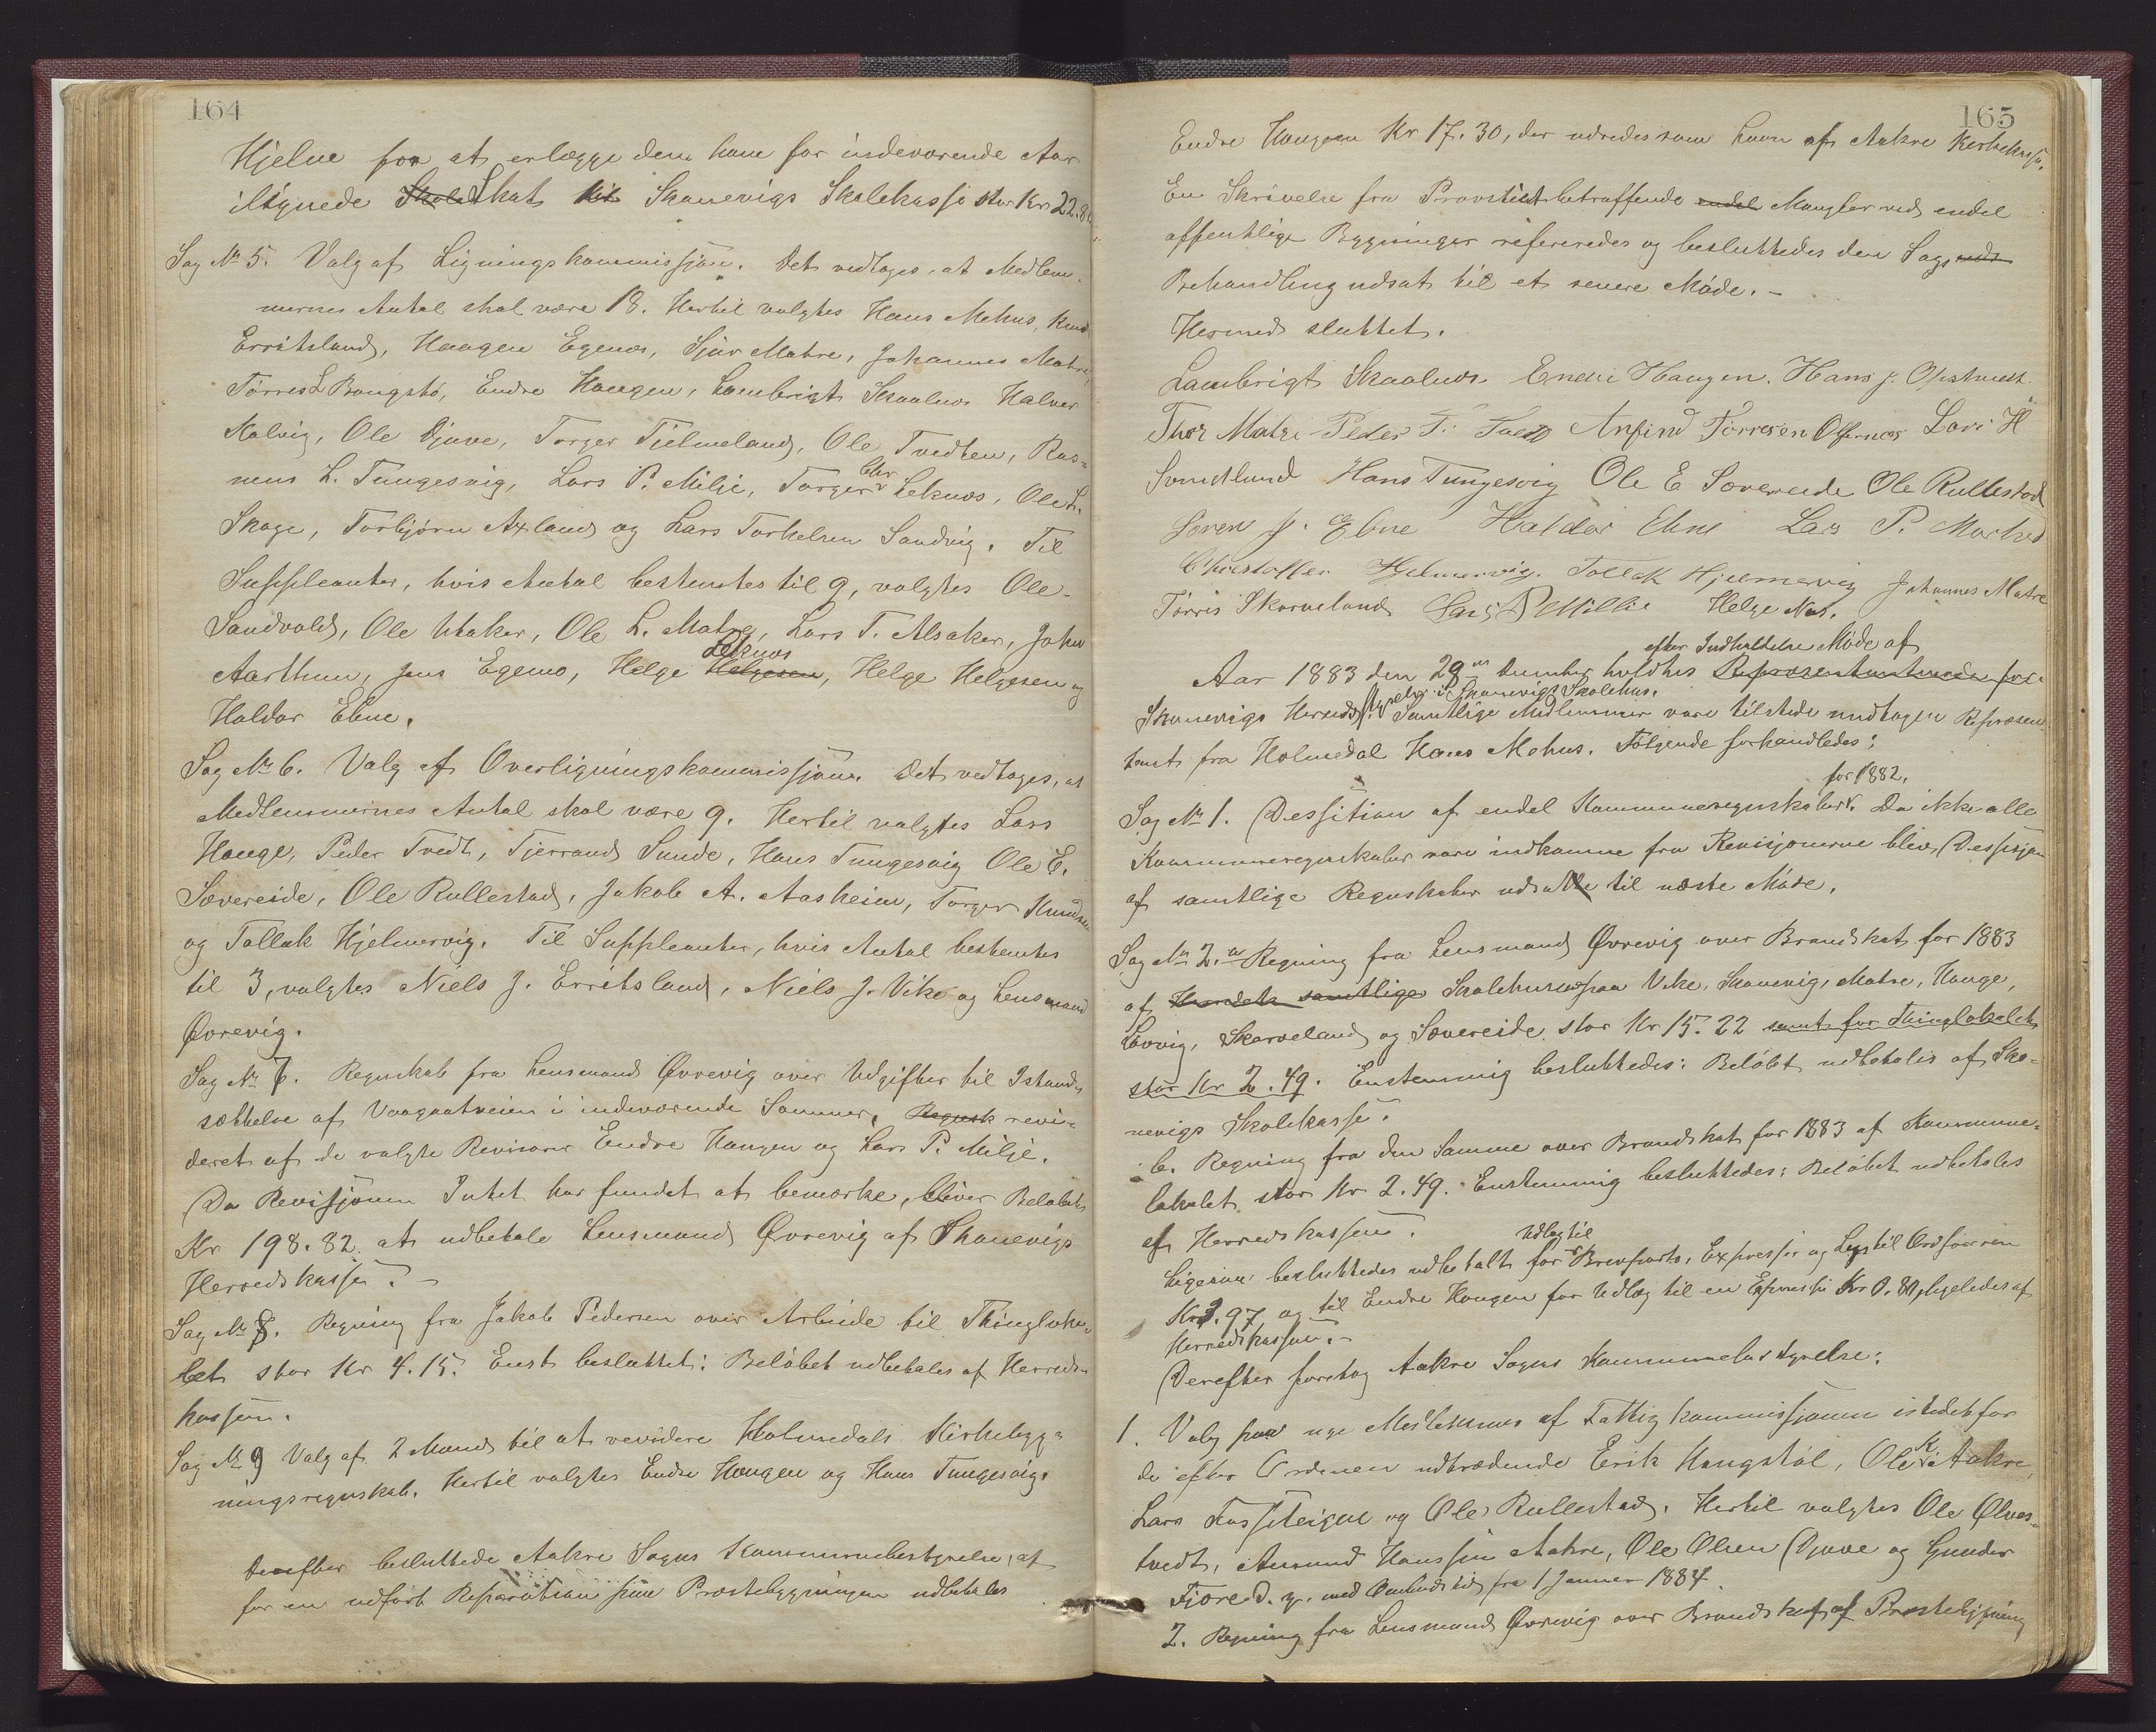 164
Hjelne for at erlægge den ham for indeværende Aar
ilignede Skat til Skonevigs Skolekasse stor Kr 22.80
Sag No 5. Valg af Ligningskommissjon. Det vedtoges, at Medlem-
mernes Antal skal være 18. Hertil valgtes Hans Mehus, Knud
Erritsland, Haagen Egenæs, Sjur Matre, Johannes Matre,
Tørres L Bougstø, Endre Haugen, Lambrigt Skaalnes Halvor
Kalvig, Ole Djuve, Torger Tjelmeland, Ole Tvedten, Ras-
mus L. Tungesvig, Lars P. Milje, Torger Chr Leknes, Ole L.
Skoge, Torbjørn Axland og Lars Torkelsen Sandvig. Til
Suppleanter, hvis Antal bestemtes til 9, valgtes Ole
Sandvold, Ole Utaker, Ole L. Matre, Lars T. Alsaker, John
Aarthun, Jens Egenæs, Helge Leknes Helgesen, Helge Helgesen og
Haldor Ebne.
Sag No 6. Valg af Overligningskommissjon. Det vedtoges, at
Medlemmernes Antal skal være 9. Hertil valgtes Lars
Hauge, Peder Tvedt, Tjerrand Sunde, Hans Tungesvig Ole E.
Sævereide, Ole Rullestad, Jakob A. Aasheim, Torger Knudsen
og Tollak Hjelmervig. Til Suppleanter, hvis Antal bestemtes
til 3, valgtes Niels J. Erritsland, Niels J. Vike og Lensmand
Øvrevig.
Sag No 7. Regnskab fra Lensmand Øvrevig over Udgifter til Istand-
sættelse af Vaagaatveien i indeværende Sommer, Regnsk revi-
deret af de valgte Revisorer Endre Haugen og Lars P. Milje.
Da Revisjonen Intet har fundet at bemærke, bliver Beløbet
Kr 198.82 at udbetale Lensmand Øvrevig af Skonevigs
Herredskasse. -
Sag No 8. Regning fra Jakob Pedersen over Arbeide til Thingloka-
let stor Kr 4.15. Enst besluttet: Beløbet udbetales af Herreds-
kassen.
Sag No 9 Valg af 2 Mænd til at revidere Holmedals Kirkebyg-
ningsregnskab. Hertil valgtes Endre Haugen og Hans Tungesvig.
Derefter besluttede Aakre Sogns Kommunebestyrelse, at
for en udført Reparation paa Præstebygningen udbetales
165
Endre Haugen Kr 17.30, der udredes som Laan af Aakre Kirkekasse.
En Skrivelse fra Provstiet betræffende endel Mangler ved endel
offentlige Bygninger refereredes og besluttedes den Sags uds
Behandling udsat til et senere Møde. -
Hermed sluttet.
Lambrigt Skaalnes Endre Haugen. Hans J. Opstvedt
Thor Matre Peder T. Tvedt Anfind Tørresen Olfernæs Lars H
Svendlund Hans Tungesvig Ole E Sævereide Ole Rullestad
Søren J. Ebne Haldor Ebne Lars P. Markhus
Christoffer Hjelmervig. Tollak Hjelmervig Johannes Matre
Tørris Skorveland Lars P Millie Helge Næs.
efter Indkaldelse Møde af
Aar 1883 den 28de December holdtes Repræsentantmøde for
Skonevigs Herredsstyrelse i Skonevigs Skolehus.
Samtlige Medlemmer vare tilstede undtagen Repræsen-
tant fra Holmedal Hans Mehus. Følgende forhandledes:
for 1882.
Sag No 1. Dessition af endel Kommuneregnskaber. Da ikke alle
Kommuneregnskaber vare indkomne fra Revisjonerne blev Dessisjon
af samtlige Regnskaber udsatte til næste Møde.
Sag No 2. a Regning fra Lensmand Øvrevig over Brandskat for 1883
af Herredets samtlige Skolehuse paa Vike, Skonevig, Matre, Hauge,
Løvvig, Skorveland og Sævereide stor Kr 15.22 samt for Thinglokalet
stor Kr 2.49. Enstemmig besluttedes: Beløbet udbetales af Sko-
nevigs Skolekasse.
b. Regning fra den Samme over Brandskat for 1883 af Kommune-
lokalet stor Kr 2.49. Enstemmig besluttedes: Beløbet udbetales
af Herredskassen.
Udlæg til
Ligesaa besluttedes udbetalt for Brevporto, Expresser og Lys til Ordføreren
Kr 3.97 og til Endre Haugen for Udlæg til en Expresse Kr 0.80, ligeledes af
Herredskassen. -
Derefter foretog Aakre Sogns Kommunebestyrelse:
1. Valg paa nye Medlemmer af Fattigkommissjonen istedetfor
de efter Ordenen udtrædende Erik Haugstøl, Ole K. Aakre,
Lars Fossteigen og Ole Rullestad. Hertil valgtes Ole Ølves-
tvedt, Amund Hanssen Aakre, Ole Olsen Djuve og Gunder
Fjære d. y. med Ombudstid fra 1 Januar 1884.
2. Regning fra Lensmand Øvrevig over Brandskat af Præstebygning